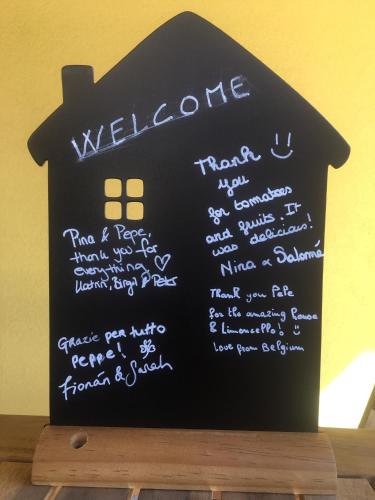 WELCOME
Pina & Pepe,
thank you for
everything ♡
Katrin, Birgit & Peter
Grazie per tutto
Peppe!
Fionán & Sarah
Thank
you
for tomatoes
and fruits. It
was delicious!
Nina & Salomé
Thank you Pepe
for the amazing house
& Limoncello! :)
Love from Belgium